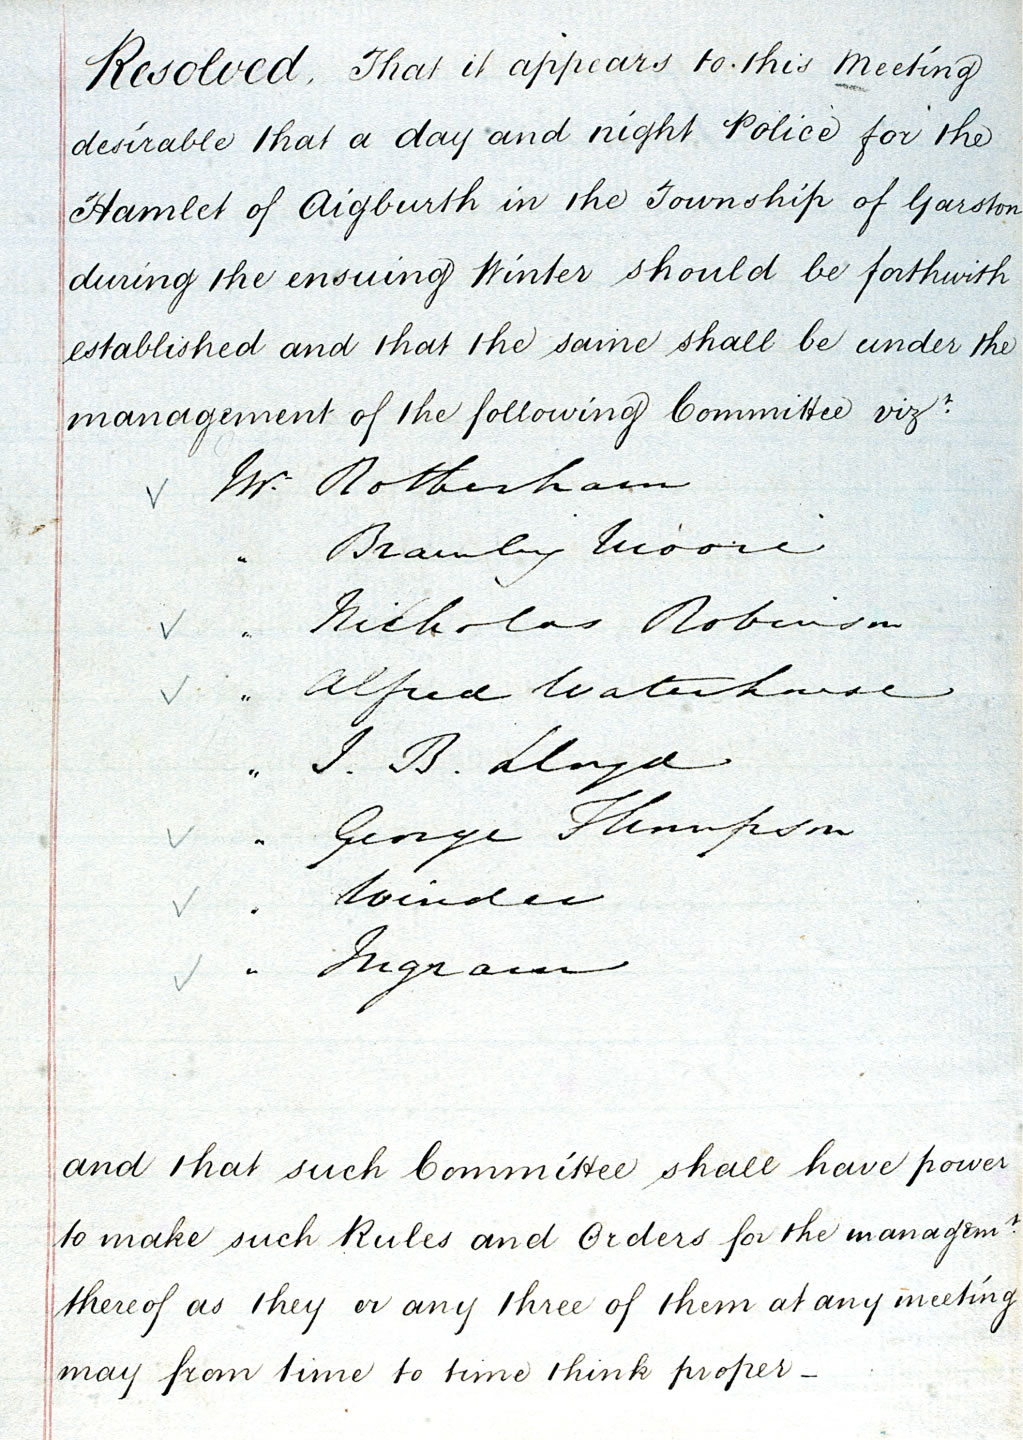 Resolved. That it appears to this Meeting
desirable that a day and night Police for the
Hamlet of Aigburth in the Township of Garston
during the ensuing Winter should be forthwith
established and that the same shall be under the
management of the following Committee vizt
✓ Mr. Rotherham
" Bramley Moore
✓ " Nicholas Robinson
✓ " Alfred Waterhouse
" J. B. Lloyd
✓ " George Thompson
✓ " Winder
✓ " Ingram
and that such Committee shall have power
to make such Rules and Orders for the managemt
thereof as they or any three of them at any meeting
may from time to time think proper —